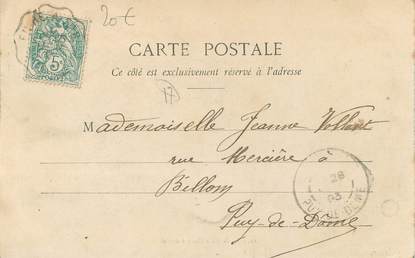 20€
5c
CARTE POSTALE
Ce côté est exclusivement réservé à l'adresse
Mademoiselle Jeanne Vollant
rue Mercière à
Billom
Puy-de-Dôme
28
03
PUY-DE-DÔME